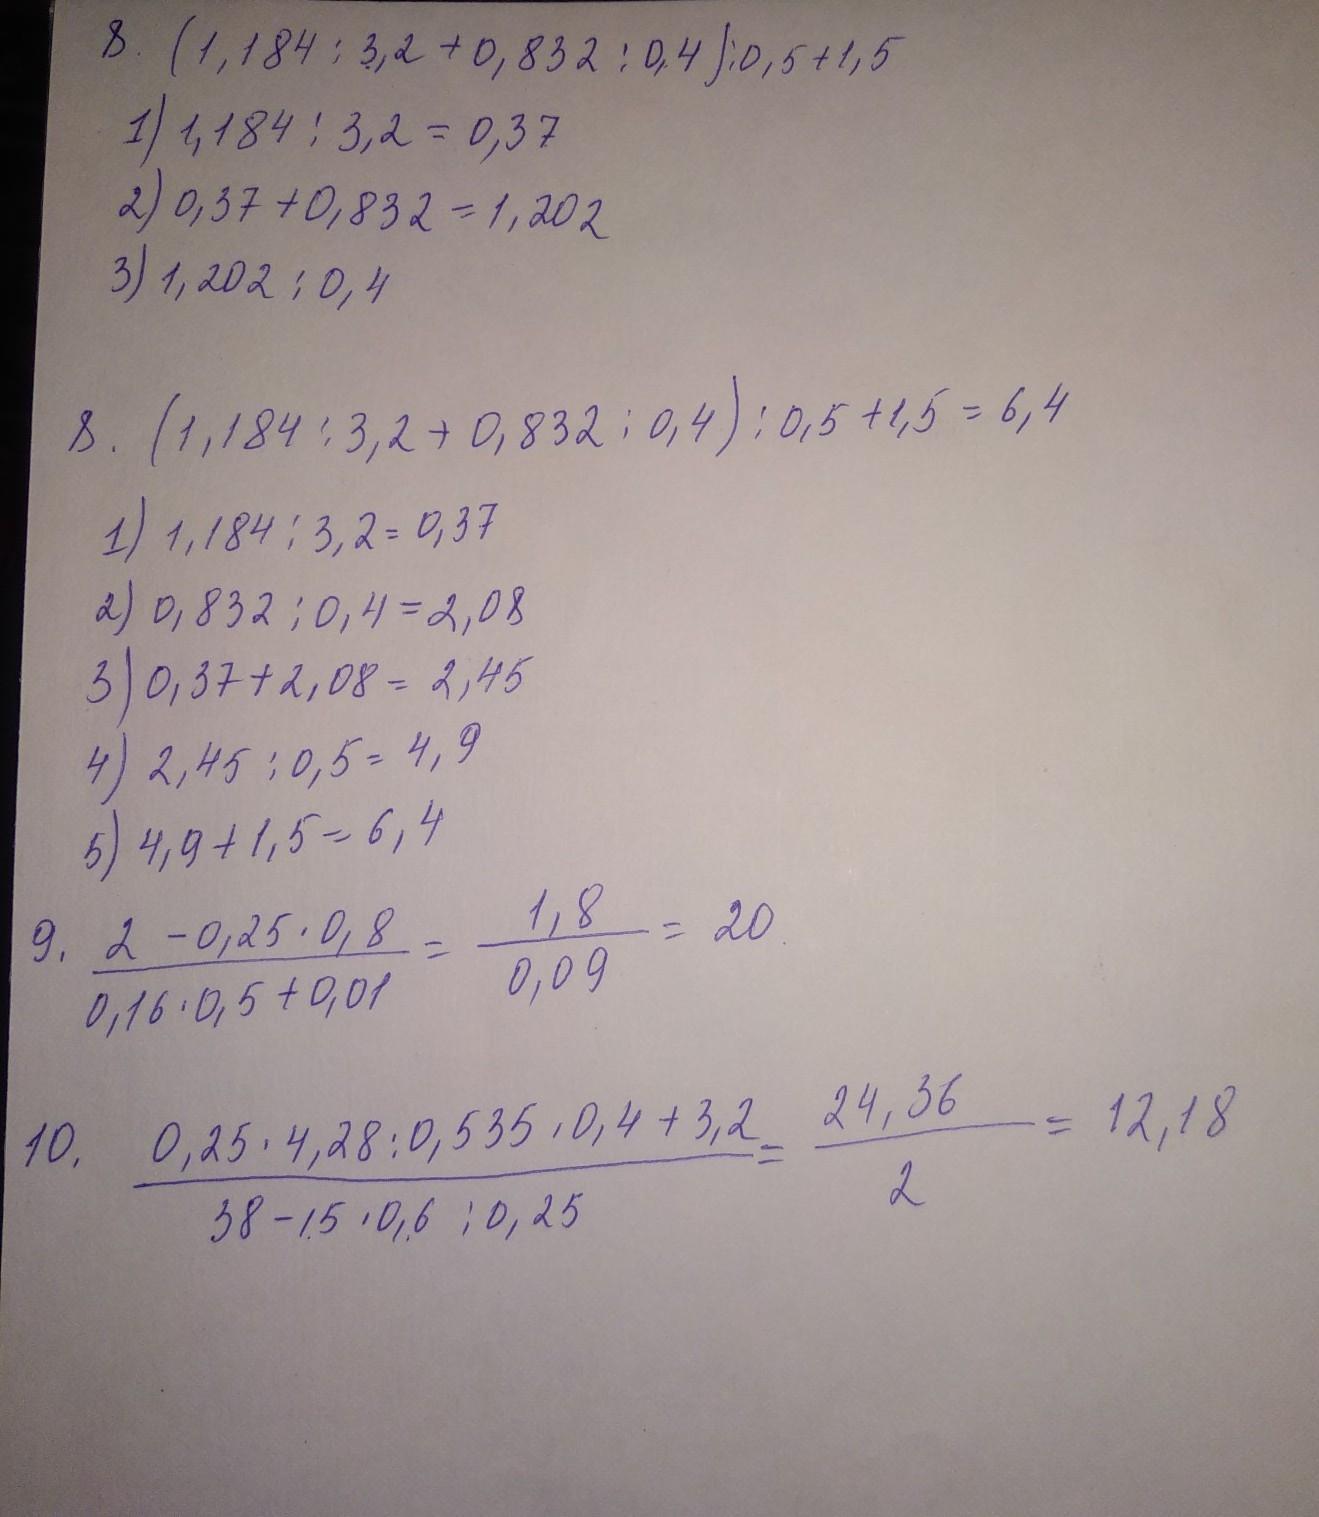 8. (1,184 : 3,2 + 0,832 : 0,4) : 0,5 + 1,5
1) 1,184 : 3,2 = 0,37
2) 0,37 + 0,832 = 1,202
3) 1,202 : 0,4
8. (1,184 : 3,2 + 0,832 : 0,4) : 0,5 + 1,5 = 6,4
1) 1,184 : 3,2 = 0,37
2) 0,832 : 0,4 = 2,08
3) 0,37 + 2,08 = 2,45
4) 2,45 : 0,5 = 4,9
5) 4,9 + 1,5 = 6,4
9. (2 - 0,25 · 0,8) / (0,16 · 0,5 + 0,01) = 1,8 / 0,09 = 20
10. (0,25 · 4,28 : 0,535 · 0,4 + 3,2) / (38 - 15 · 0,6 : 0,25) = 24,36 / 2 = 12,18